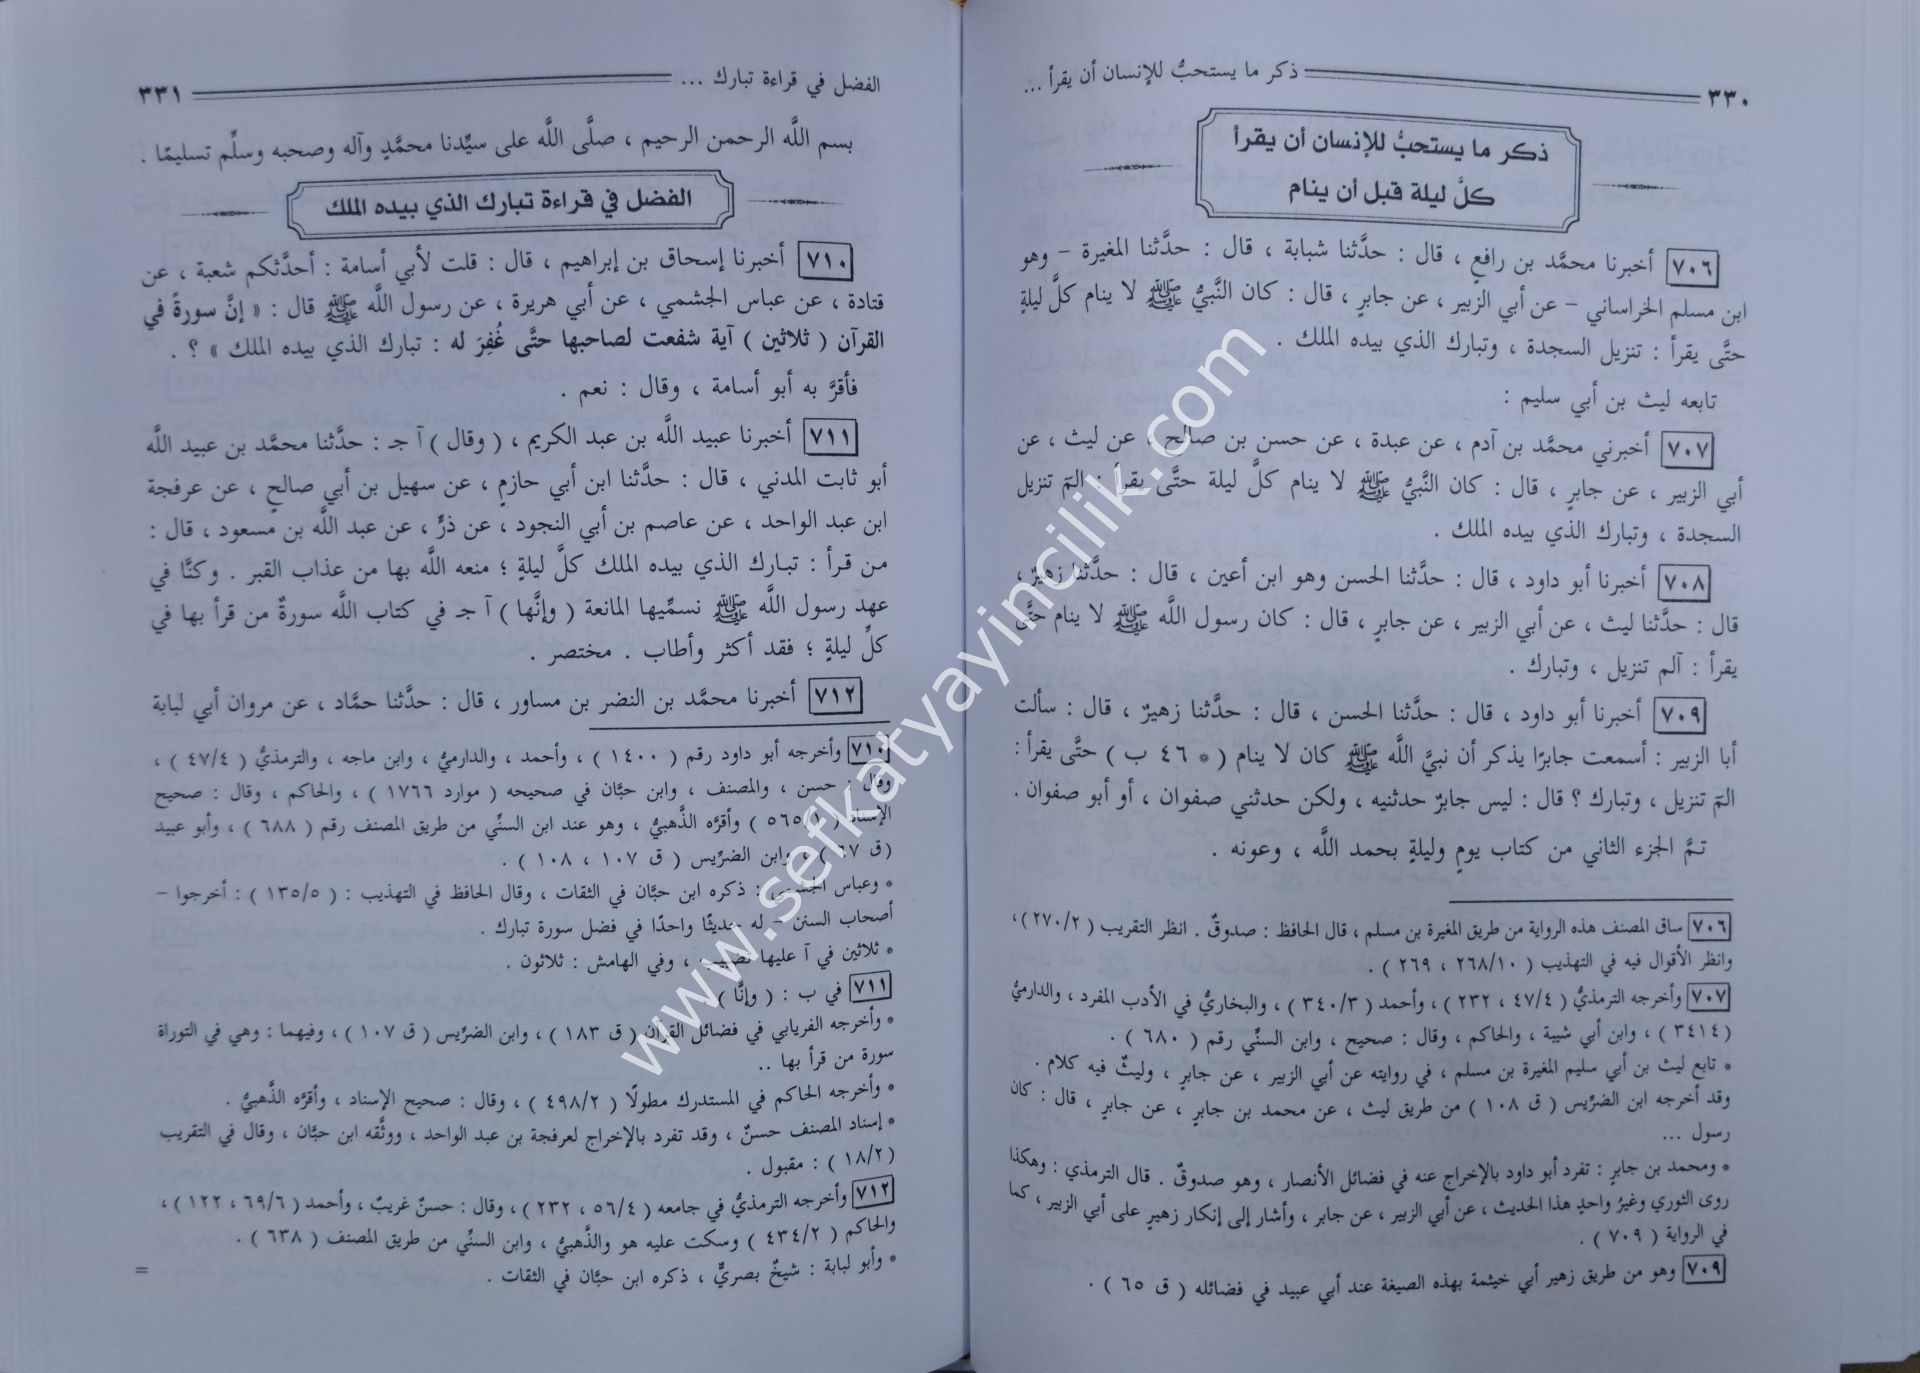 ٣٣٠ ذكر ما يستحبُّ للإنسان أن يقرأ ...
ذكر ما يستحبُّ للإنسان أن يقرأ
كلَّ ليلة قبل أن ينام
٧٠٦ أخبرنا محمَّد بن رافعٍ ، قال : حدَّثنا شبابة ، قال : حدَّثنا المغيرة – وهو
ابن مسلم الخراساني – عن أبي الزبير ، عن جابرٍ ، قال : كان النَّبيُّ ﷺ لا ينام كلَّ ليلةٍ
حتَّى يقرأ : تنزيل السجدة ، وتبارك الذي بيده الملك .
تابعه ليث بن أبي سليم :
٧٠٧ أخبرني محمَّد بن آدم ، عن عبدة ، عن حسن بن صالح ، عن ليث ، عن
أبي الزبير ، عن جابرٍ ، قال : كان النَّبيُّ ﷺ لا ينام كلَّ ليلة حتَّى يقرأ : المٓ تنزيل
السجدة ، وتبارك الذي بيده الملك .
٧٠٨ أخبرنا أبو داود ، قال : حدَّثنا الحسن وهو ابن أعين ، قال : حدَّثنا زهيرٌ ،
قال : حدَّثنا ليث ، عن أبي الزبير ، عن جابرٍ ، قال : كان رسول اللَّه ﷺ لا ينام حتَّى
يقرأ : آلم تنزيل ، وتبارك .
٧٠٩ أخبرنا أبو داود ، قال : حدَّثنا الحسن ، قال : حدَّثنا زهيرٌ ، قال : سألت
أبا الزبير : أسمعت جابرًا يذكر أن نبيَّ اللَّه ﷺ كان لا ينام ( * ٤٦ ب ) حتَّى يقرأ :
المٓ تنزيل ، وتبارك ؟ قال : ليس جابرٌ حدثنيه ، ولكن حدثني صفوان ، أو أبو صفوان .
تمَّ الجزء الثاني من كتاب يومٍ وليلةٍ بحمد اللَّه ، وعونه .
٧٠٦ ساق المصنف هذه الرواية من طريق المغيرة بن مسلم ، قال الحافظ : صدوقٌ . انظر التقريب ( ٢٧٠/٢ ) ،
وانظر الأقوال فيه في التهذيب ( ٢٦٨/١٠ ، ٢٦٩ ) .
٧٠٧ وأخرجه الترمذيُّ ( ٤٧/٤ ، ٢٣٢ ) ، وأحمد ( ٣٤٠/٣ ) ، والبخاريُّ في الأدب المفرد ، والدارميُّ
( ٣٤١٤ ) ، وابن أبي شيبة ، والحاكم ، وقال : صحيح ، وابن السنِّي رقم ( ٦٨٠ ) .
* تابع ليث بن أبي سليم المغيرة بن مسلم ، في روايته عن أبي الزبير ، عن جابرٍ ، وليثٌ فيه كلام .
وقد أخرجه ابن الضرِّيس ( ق ١٠٨ ) من طريق ليث ، عن محمد بن جابرٍ ، عن جابرٍ ، قال : كان
رسول ...
* ومحمد بن جابرٍ : تفرد أبو داود بالإخراج عنه في فضائل الأنصار ، وهو صدوقٌ . قال الترمذي : وهكذا
روى الثوري وغيرُ واحدٍ هذا الحديث ، عن أبي الزبير ، عن جابر ، وأشار إلى إنكار زهيرٍ على أبي الزبير ، كما
في الرواية ( ٧٠٩ ) .
٧٠٩ وهو من طريق زهير أبي خيثمة بهذه الصيغة عند أبي عبيد في فضائله ( ق ٦٥ ) .
الفضل في قراءة تبارك ... ٣٣١
بسم اللَّه الرحمن الرحيم ، صلَّى اللَّه على سيِّدنا محمَّدٍ وآله وصحبه وسلِّم تسليمًا .
الفضل في قراءة تبارك الذي بيده الملك
٧١٠ أخبرنا إسحاق بن إبراهيم ، قال : قلت لأبي أسامة : أحدَّثكم شعبة ، عن
قتادة ، عن عباس الجشمي ، عن أبي هريرة ، عن رسول اللَّه ﷺ قال : « إنَّ سورةً في
القرآن ( ثلاثين ) آية شفعت لصاحبها حتَّى غُفِرَ له : تبارك الذي بيده الملك » ؟ .
فأقرَّ به أبو أسامة ، وقال : نعم .
٧١١ أخبرنا عبيد اللَّه بن عبد الكريم ، ( وقال ) آ جـ : حدَّثنا محمَّد بن عبيد اللَّه
أبو ثابت المدني ، قال : حدَّثنا ابن أبي حازمٍ ، عن سهيل بن أبي صالحٍ ، عن عرفجة
ابن عبد الواحد ، عن عاصم بن أبي النجود ، عن ذرٍّ ، عن عبد اللَّه بن مسعود ، قال :
من قرأ : تبارك الذي بيده الملك كلَّ ليلةٍ ؛ منعه اللَّه بها من عذاب القبر . وكنَّا في
عهد رسول اللَّه ﷺ نسمِّيها المانعة ( وإنَّها ) آ جـ في كتاب اللَّه سورةٌ من قرأ بها في
كلِّ ليلةٍ ؛ فقد أكثر وأطاب . مختصر .
٧١٢ أخبرنا محمَّد بن النضر بن مساور ، قال : حدَّثنا حمَّاد ، عن مروان أبي لبابة
٧١٠ وأخرجه أبو داود رقم ( ١٤٠٠ ) ، وأحمد ، والدارميُّ ، وابن ماجه ، والترمذيُّ ( ٤٧/٤ ) ،
وقال : حسن ، والمصنف ، وابن حبَّان في صحيحه ( موارد ١٧٦٦ ) ، والحاكم ، وقال : صحيح
الإسناد ( ٥٦٥/١ ) وأقرَّه الذَّهبيُّ ، وهو عند ابن السنِّي من طريق المصنف رقم ( ٦٨٨ ) ، وأبو عبيد
( ق ٦٧ ) ، وابن الضرِّيس ( ق ١٠٧ ، ١٠٨ ) .
* وعباس الجشمي : ذكره ابن حبَّان في الثقات ، وقال الحافظ في التهذيب : ( ١٣٥/٥ ) : أخرجوا –
أصحاب السنن – له حديثًا واحدًا في فضل سورة تبارك .
* ثلاثين في آ عليها تضبيب ، وفي الهامش : ثلاثون .
٧١١ في ب : ( وإنَّا ) .
* وأخرجه الفريابي في فضائل القرآن ( ق ١٨٣ ) ، وابن الضرِّيس ( ق ١٠٧ ) ، وفيهما : وهي في التوراة
سورة من قرأ بها ..
* وأخرجه الحاكم في المستدرك مطولًا ( ٤٩٨/٢ ) ، وقال : صحيح الإسناد ، وأقرَّه الذَّهبيُّ .
* إسناد المصنف حسنٌ ، وقد تفرد بالإخراج لعرفجة بن عبد الواحد ، ووثَّقه ابن حبَّان ، وقال في التقريب
( ١٨/٢ ) : مقبول .
٧١٢ وأخرجه الترمذيُّ في جامعه ( ٥٦/٤ ، ٢٣٢ ) ، وقال : حسنٌ غريبٌ ، وأحمد ( ٦٩/٦ ، ١٢٢ ) ،
والحاكم ( ٤٣٤/٢ ) وسكت عليه هو والذَّهبيُّ ، وابن السنِّي من طريق المصنف ( ٦٣٨ ) .
* وأبو لبابة : شيخٌ بصريٌّ ، ذكره ابن حبَّان في الثقات .
=
www.sefkatyayincilik.com